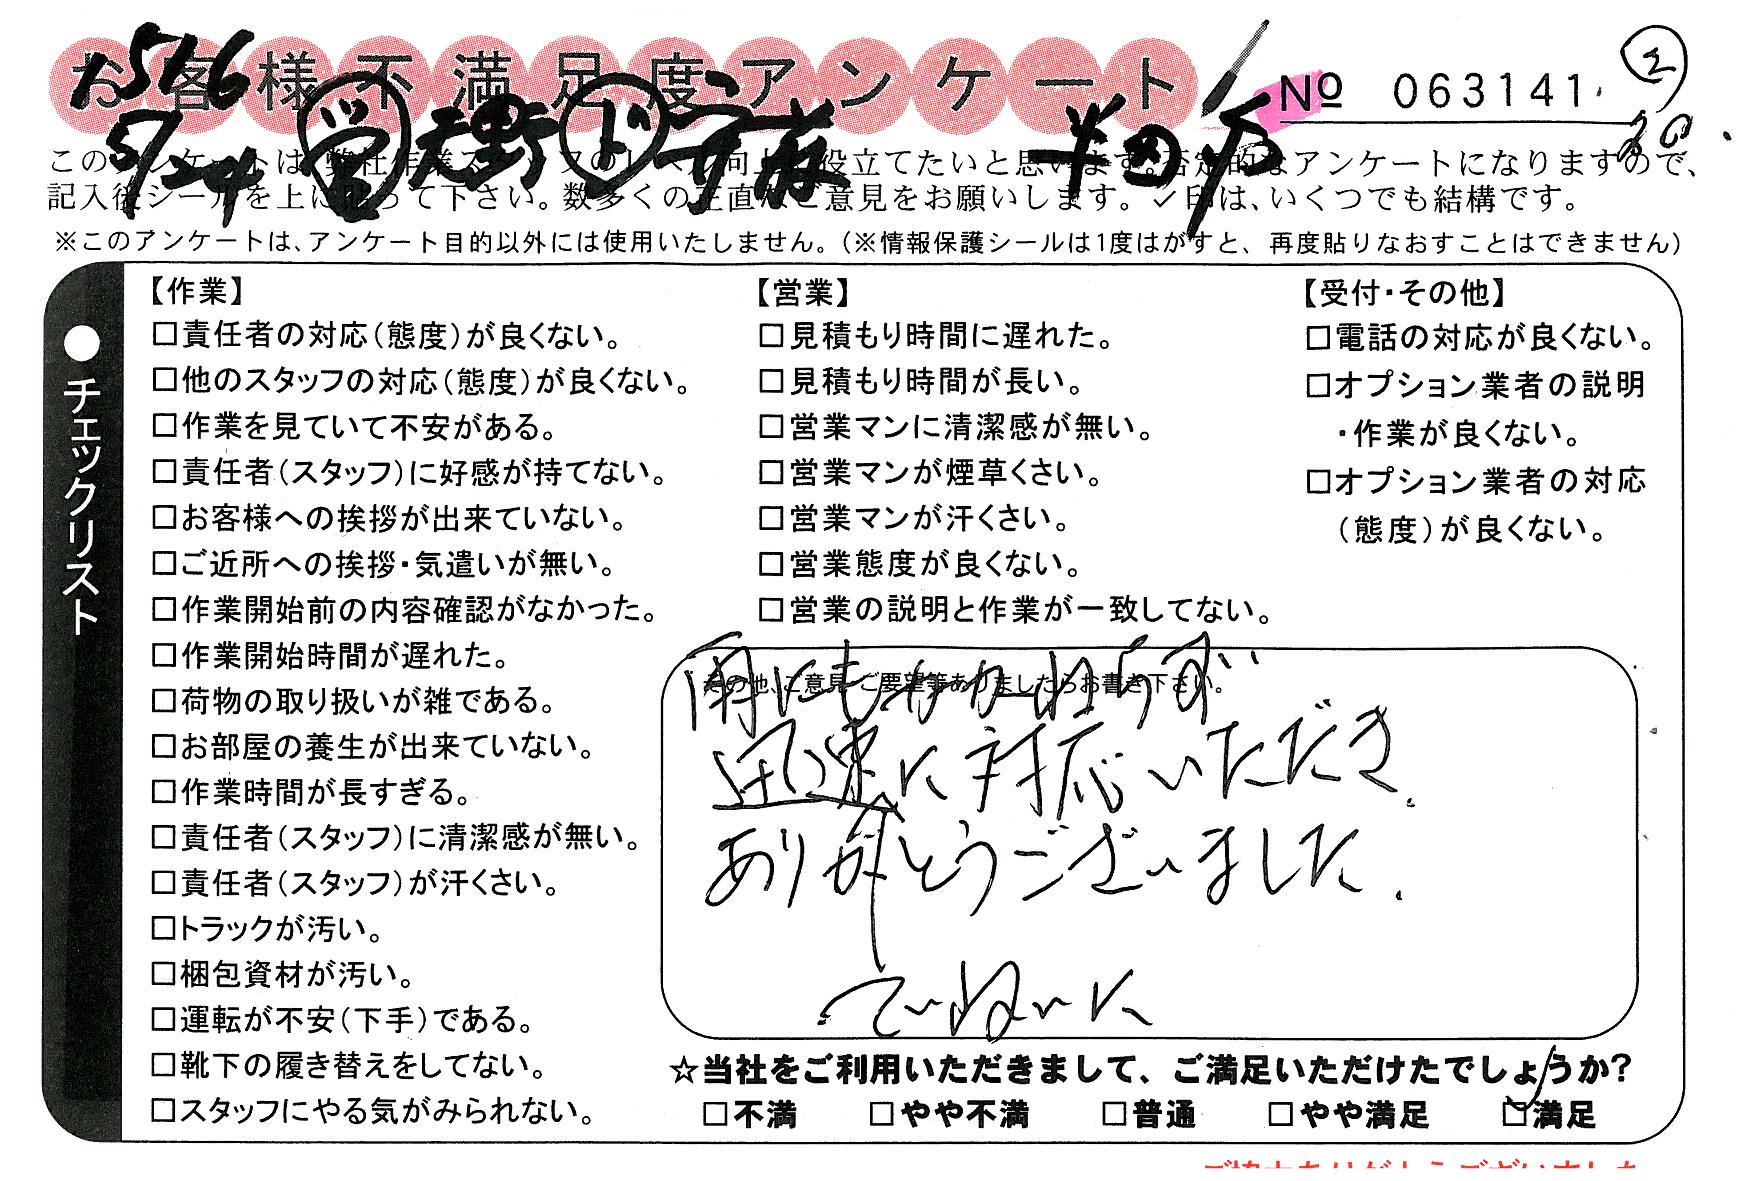 お客様不満足度アンケート
№ 063141
2
20
516
5/24
このアンケートは、弊社作業スタッフのレベル向上に役立てたいと思います。否定的なアンケートになりますので、
記入後シールを上に貼って下さい。数多くの正直なご意見をお願いします。✓印は、いくつでも結構です。
※このアンケートは、アンケート目的以外には使用いたしません。(※情報保護シールは1度はがすと、再度貼りなおすことはできません)
●チェックリスト
【作業】
□責任者の対応(態度)が良くない。
□他のスタッフの対応(態度)が良くない。
□作業を見ていて不安がある。
□責任者(スタッフ)に好感が持てない。
□お客様への挨拶が出来ていない。
□ご近所への挨拶・気遣いが無い。
□作業開始前の内容確認がなかった。
□作業開始時間が遅れた。
□荷物の取り扱いが雑である。
□お部屋の養生が出来ていない。
□作業時間が長すぎる。
□責任者(スタッフ)に清潔感が無い。
□責任者(スタッフ)が汗くさい。
□トラックが汚い。
□梱包資材が汚い。
□運転が不安(下手)である。
□靴下の履き替えをしてない。
□スタッフにやる気がみられない。
【営業】
□見積もり時間に遅れた。
□見積もり時間が長い。
□営業マンに清潔感が無い。
□営業マンが煙草くさい。
□営業マンが汗くさい。
□営業態度が良くない。
□営業の説明と作業が一致してない。
【受付・その他】
□電話の対応が良くない。
□オプション業者の説明
・作業が良くない。
□オプション業者の対応
(態度)が良くない。
その他、ご意見・ご要望等ありましたらお書き下さい。
雨にもかかわらず
迅速に対応いただき
ありがとうございました.
ていねいに
☆当社をご利用いただきまして、ご満足いただけたでしょうか?
□不満 □やや不満 □普通 □やや満足 ☑満足
ご協力ありがとうございました